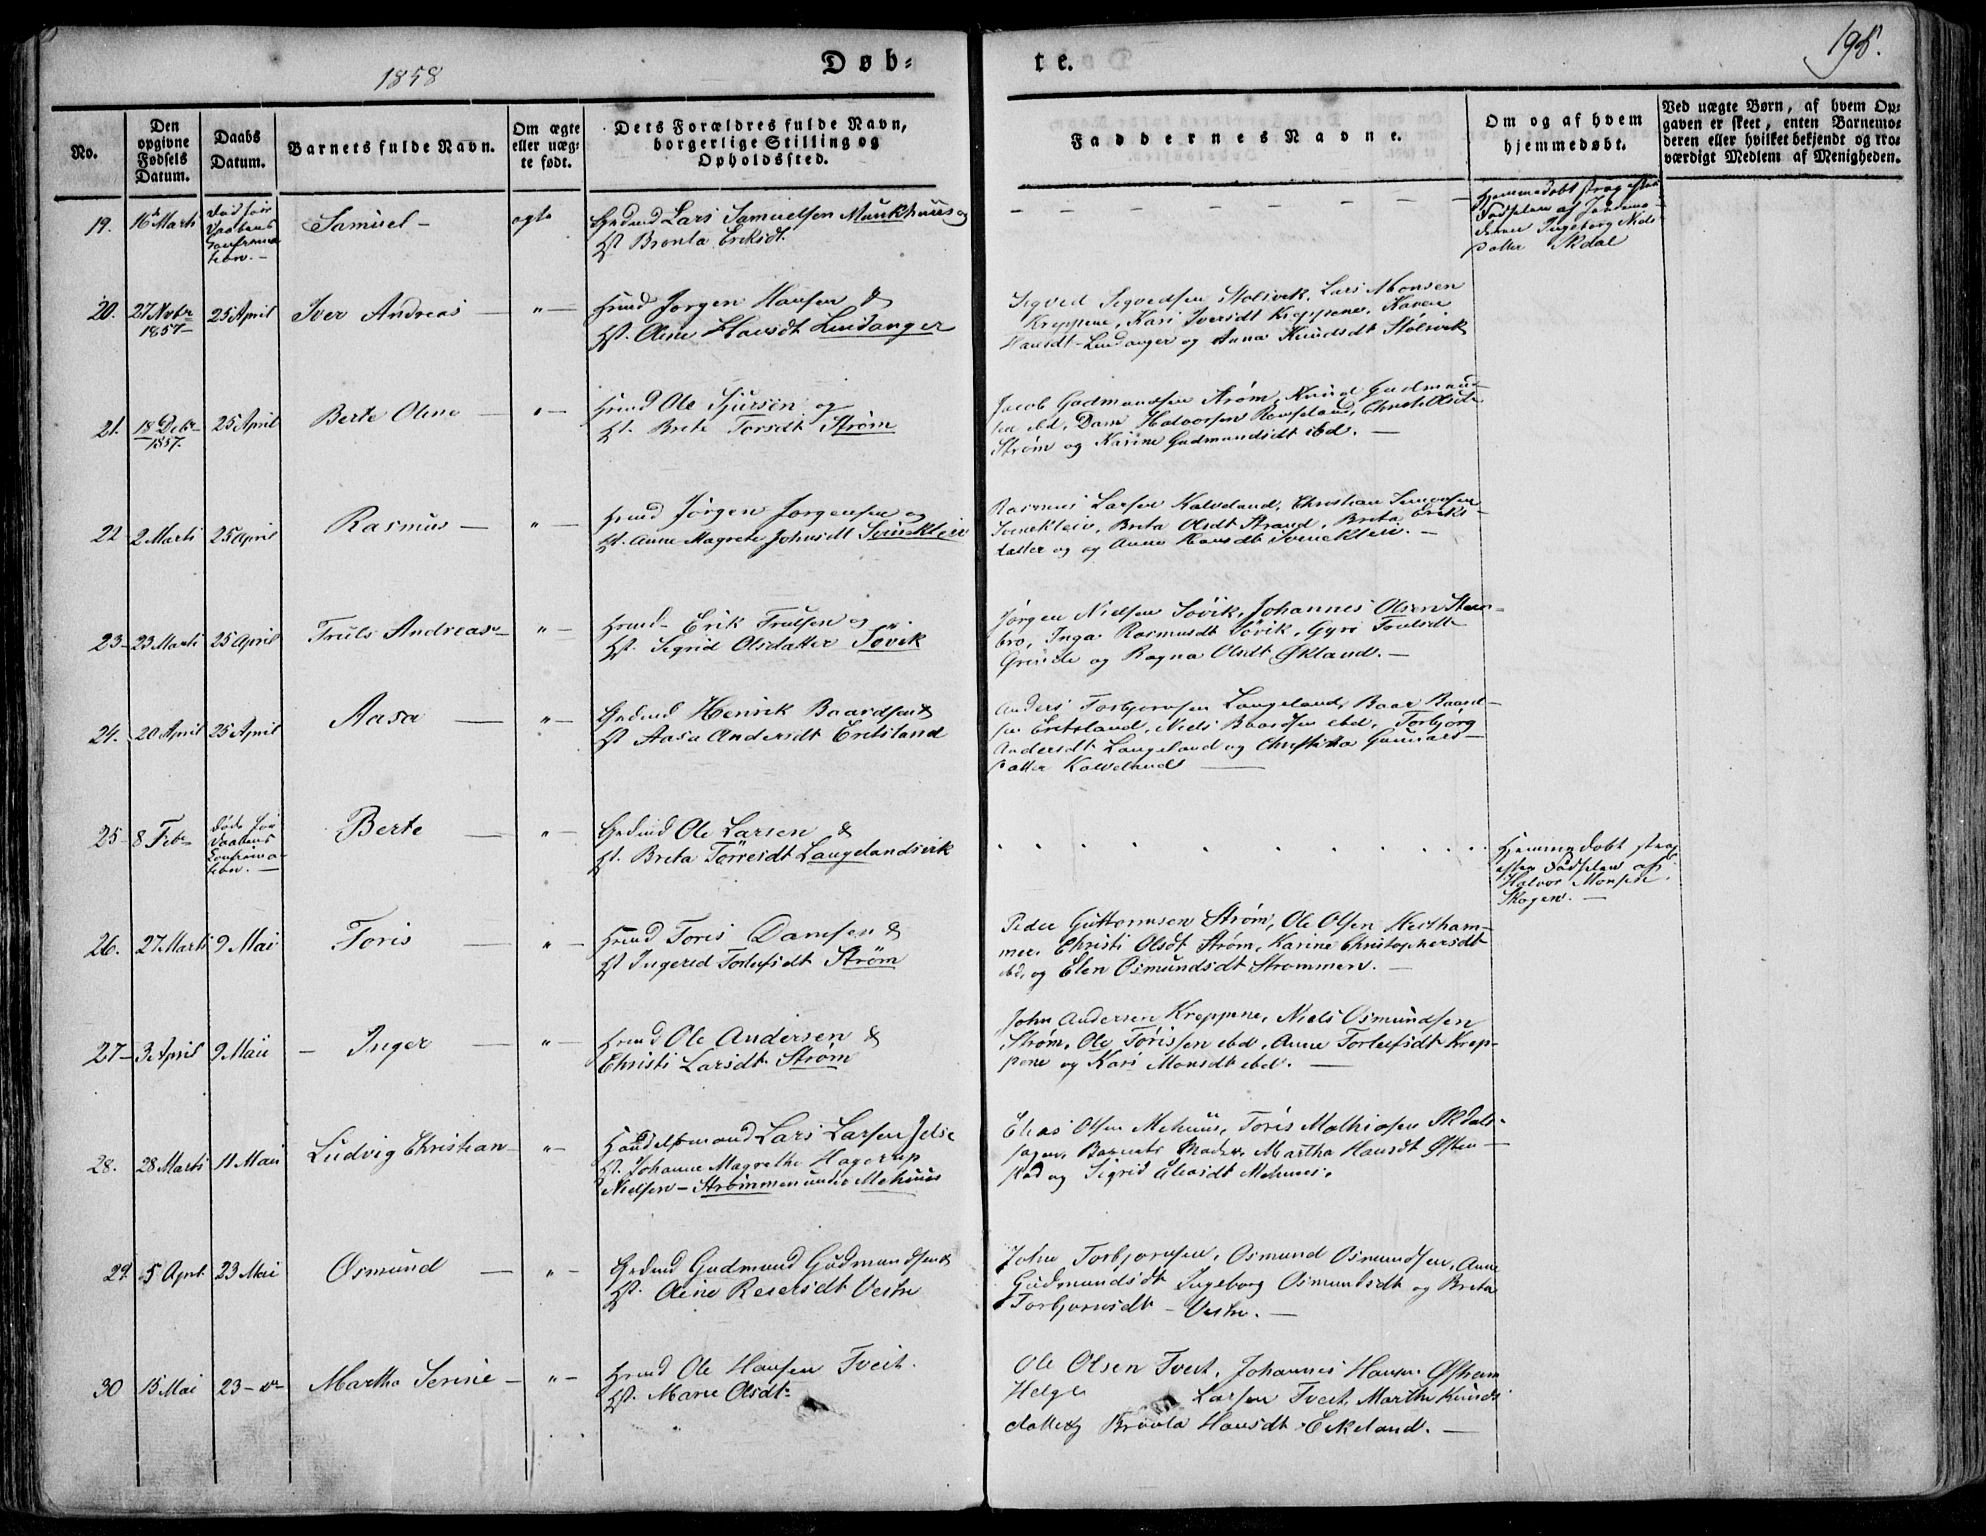 1858
Døb-
te.
198.
No.
Den opgivne Fødsels Datum.
Daabs Datum.
Barnets fulde Navn.
Om ægte eller uægte født.
Dets Forældres fulde Navn, borgerlige Stilling og Opholdssted.
Faddernes Navne.
Om og af hvem hjemmedøbt.
Ved uægte Børn, af hvem Opgaven er skeet, enten Barnemoderen eller hvilket bekjendt og troværdigt Medlem af Menigheden.
19. 16 Marti
Død før
Daabens
Confirma
tion.-
Samuel - ægte
Grdmd Lars Samuelsen Munkhuus og
H. Bronla Eriksdt.
Hjemmedøbt strax efter
Fødselen af Jordemo-
deren Ingeborg Niels
Datter Ikdal
20. 27 Novbr 1857 25 April Iver Andreas — " —
Hmd Jørgen Hansen &
H. Oline Hansdt Lindanger
Sigved Sigvedsen Stølsvik, Lars Monsen
Kreppene, Kari Iversdt Kreppene, Karen
Hansdt Lindanger og Anna Knudsdt Stølsvik
21. 18 Decbr 1857. 25 April Berte Oline — " —
Hmd Ole Sjursen og
H. Brete Torsdt Strøm
Jacob Gudmundsen Strøm, Knud Gudmund-
sen ibd, Dam Halvorsen Røvseland, Christi Olsdt
Strøm og Karine Gudmundsdt ibd. —
22 2 Marti 25 April Rasmus — " —
Hmd Jørgen Jørgensen og
H. Anne Magrete Johnsdt Svinekleiv
Rasmus Larsen Kalveland, Christian Simonsen
Svinekleiv, Brita Olsdt Strand, Breta Eriks
datter og og Anne Hansdt Svinekleiv. —
23 - 23 Marti 25 April Truls Andreas — " —
Hmd - Erik Trulsen og
H. Sigrid Olsdatter Søvik
Jørgen Nielsen Søvik, Johannes Olsen Steen-
bro, Inga Rasmusdt Søvik, Gyri Toulsdt
Grinde og Ragna Olsdt Økland. —
24. 20 April 25 April Aasa — " —
Grdmd Henrik Baardsen &
H Aasa Andersdt Eritsland
Anders Torbjørnsen Langeland, Baar Baard-
sen Eritsland, Niels Baardsen ibd, Torbjørg
Andersdt Langeland og Christina Gunnars-
datter Kalveland —
25 - 8 Feb.
Døde før
Daabens
Confirma-
tion. —
Berte — " —
Grdmd Ole Larsen &
H. Breta Tørresdt Langelandsvik
Hjemmedøbt strax
efter Fødselen af
Halvor Monsen
Skogen. —
26. 27 Marti 9 Mai Toris — " —
Hmd Toris Damsen &
H Ingerid Torleifsdt Strøm
Peder Guttormsen Strøm, Ole Olsen Hestham-
mer, Christi Olsdt Strøm, Karine Christophersdt
ibd, og Elen Osmundsdt Strømmen. —
27 - 3 April 9 Maii - Inger — " —
Hmd Ole Andersen &
Christi Larsdt Strøm
John Andersen Kreppene, Niels Osmundsen
Strøm, Ole Tørissen ibd, Anne Torleifsdt Krep-
pene og Kari Monsdt ibd. —
28. 28 Marti 11 Maii Ludvig Christian — " —
Handelsmand Lars Larsen Jelse
H. Johanne Magrethe Hagerup
Nielsen - Strømmen under Mehuus
Elias Olsen Mehuus, Tøris Mathiasen Ikdals-
, Barnets Moder, Martha Hansdt Østen-
stad og Sigrid Eliasdt Mehuus.
29. 5 April 23 Mai Osmund — " —
Grdmd Gudmund Gudmundsen &
H. Oline Reiersdt Vestre
John Torbjørnsen, Osmund Osmundsen, Anne
Gudmundsdt Ingeborg Osmundsdt og Breta
Torbjørnsdt - Vestre. —
30 15 Mai 23 - do Martha Serine — " —
Hmd Ole Hansen Tveit.
H. Marie Olsdt
Ole Olsen Tveit, Johannes Hansen Østhem
Helge Larsen Tveit, Marthe Knuds
datter og Bronla Hansdt Eikeland. —